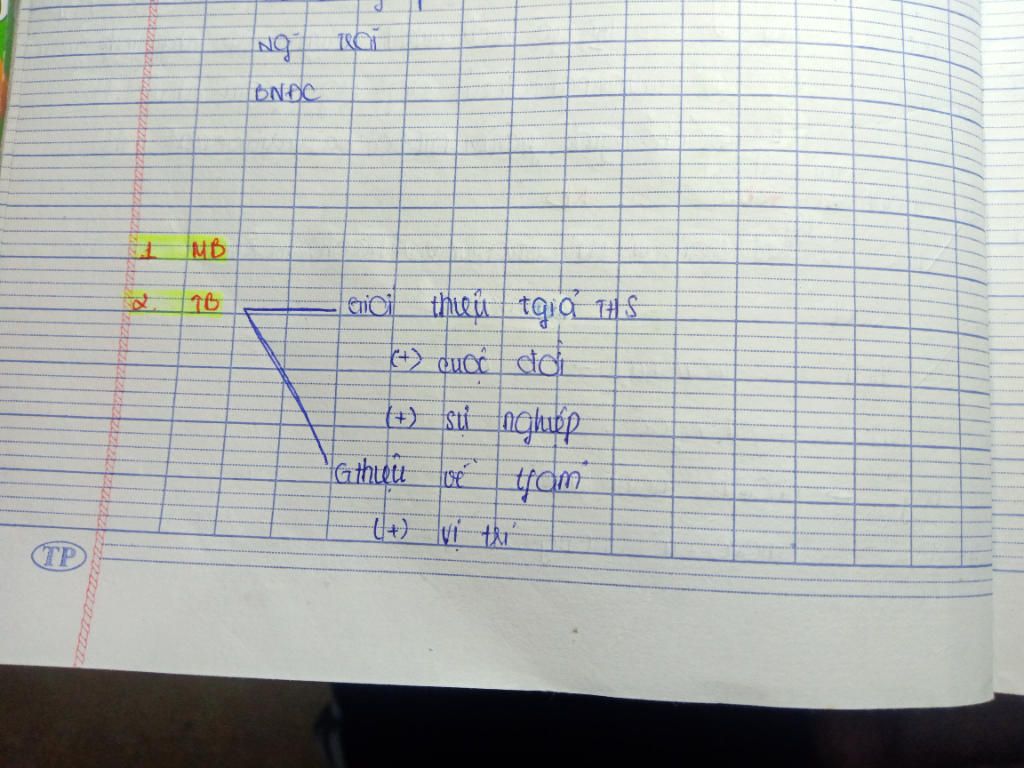 NG TRÃI
BNĐC
1 MB
2. TB
Giới thiệu tgiả THS
(+) cuộc đời
(+) sự nghiệp
Gthiệu về tpẩm
(+) vị trí
TP